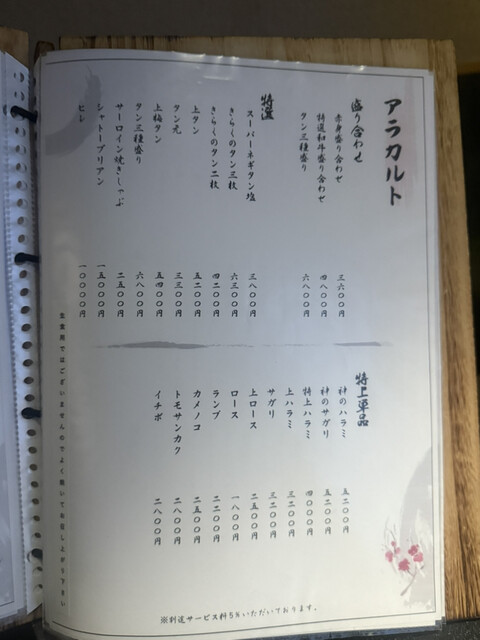 アラカルト
盛り合わせ
赤身盛り合わせ 三六〇〇円
特選和牛盛り合わせ 四八〇〇円
タン三種盛り 六八〇〇円
特選
スーパーネギタン塩 三八〇〇円
きらくのタン三枚 六三〇〇円
きらくのタン二枚 四二〇〇円
上タン 五二〇〇円
タン元 三三〇〇円
上梅タン 五四〇〇円
タン三種盛り 六八〇〇円
サーロイン焼きしゃぶ 二五〇〇円
シャトーブリアン 一五〇〇〇円
ヒレ 一〇〇〇〇円
特上単品
神のハラミ 五二〇〇円
神のサガリ 五二〇〇円
特上ハラミ 四〇〇〇円
上ハラミ 三二〇〇円
サガリ 三二〇〇円
上ロース 二五〇〇円
ロース 一八〇〇円
ランプ 二二〇〇円
カメノコ 二五〇〇円
トモサンカク 二八〇〇円
イチボ 二八〇〇円
生食用ではございませんのでよく焼いてお召し上がり下さい
※別途サービス料5%いただいております。